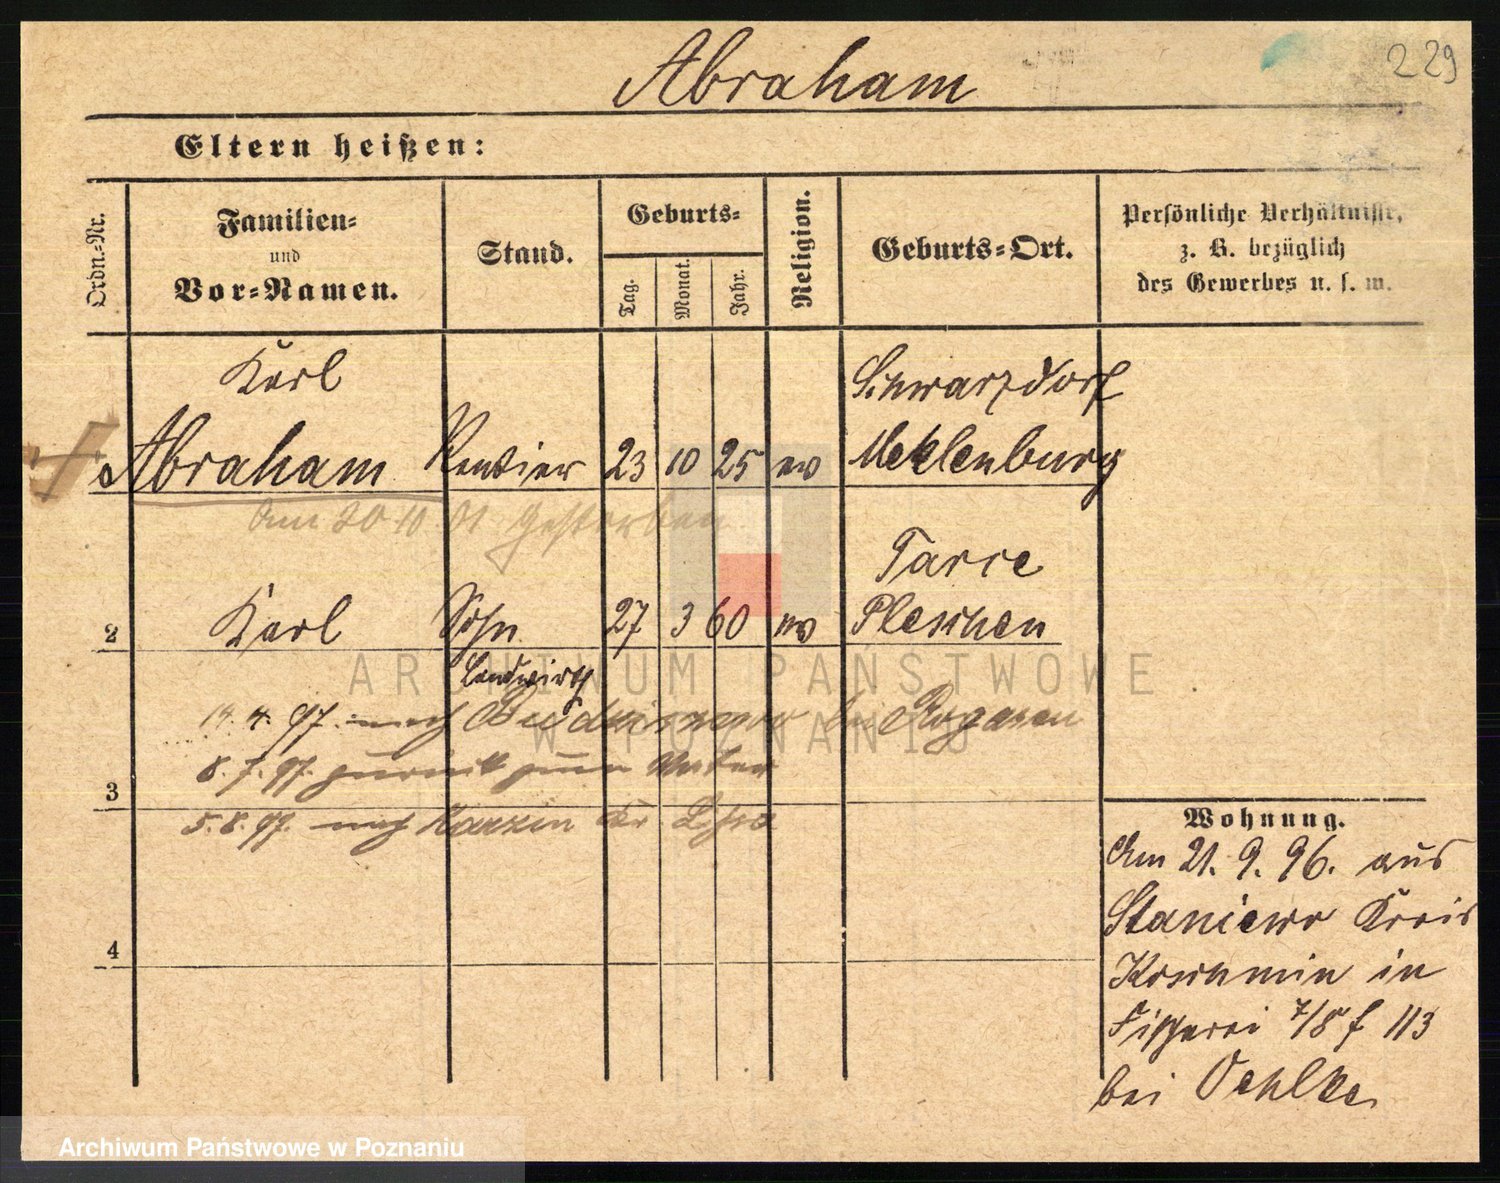 229
Abraham
Eltern heißen:
Ordn.-Nr.
Familien-
und
Vor-Namen.
Stand.
Geburts-
Tag.
Monat.
Jahr.
Religion.
Geburts-Ort.
Persönliche Verhältnisse,
z. B. bezüglich
des Gewerbes u. s. w.
Karl
Abraham Rentier 23 10 25 ev
Schwarzdorf
Meklenburg
Am 20 10 01 gestorben
2 Karl Sohn 27 3 60 ev
Tarce
Pleschen
Landwirth
14. 4. 97. nach bei Rogasen
8. 7. 97. zurück zum Vater
3
5. 8. 97. nach Kr. Lissa
4
Wohnung.
Am 21. 9. 96. aus
Staniewo Kreis
Koschmin in
Fischerei 7/8 f 113
bei Oehlke
ARCHIWUM PAŃSTWOWE
W POZNANIU
Archiwum Państwowe w Poznaniu